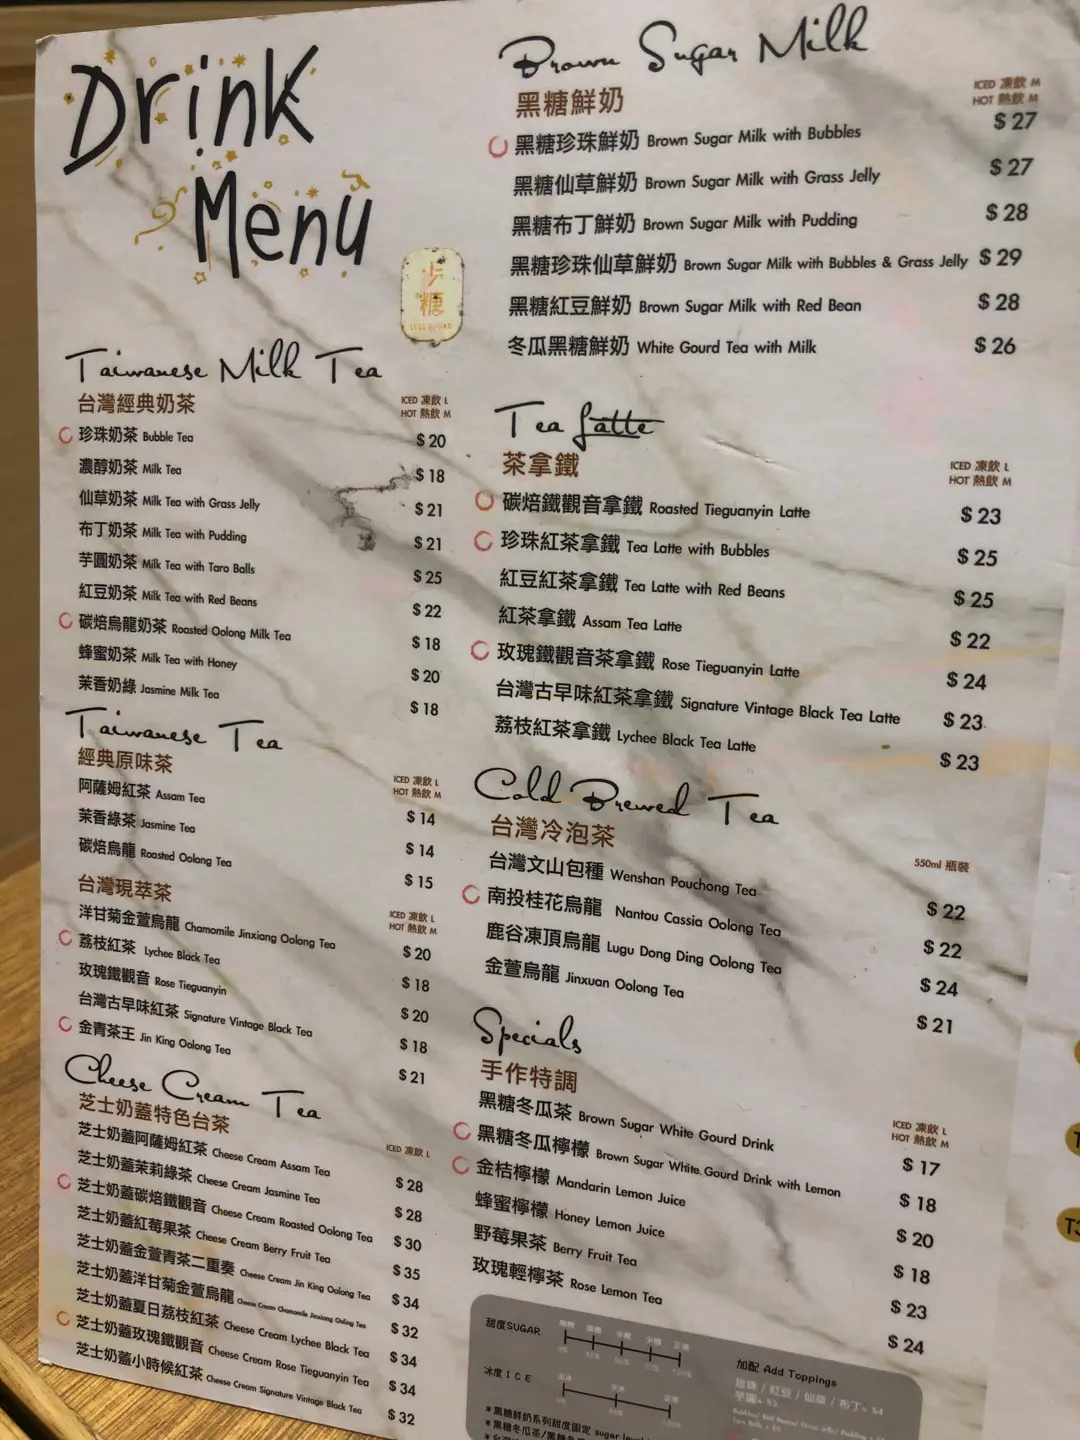 Drink
Menu
少糖
LESS SUGAR
Taiwanese Milk Tea
台灣經典奶茶
ICED 凍飲 L
HOT 熱飲 M
珍珠奶茶 Bubble Tea $ 20
濃醇奶茶 Milk Tea $ 18
仙草奶茶 Milk Tea with Grass Jelly $ 21
布丁奶茶 Milk Tea with Pudding $ 21
芋圓奶茶 Milk Tea with Taro Balls $ 25
紅豆奶茶 Milk Tea with Red Beans $ 22
碳焙烏龍奶茶 Roasted Oolong Milk Tea $ 18
蜂蜜奶茶 Milk Tea with Honey $ 20
茉香奶綠 Jasmine Milk Tea $ 18
Taiwanese Tea
經典原味茶
ICED 凍飲 L
HOT 熱飲 M
阿薩姆紅茶 Assam Tea $ 14
茉香綠茶 Jasmine Tea $ 14
碳焙烏龍 Roasted Oolong Tea $ 15
台灣現萃茶
ICED 凍飲 L
HOT 熱飲 M
洋甘菊金萱烏龍 Chamomile Jinxiang Oolong Tea $ 20
荔枝紅茶 Lychee Black Tea $ 18
玫瑰鐵觀音 Rose Tieguanyin $ 20
台灣古早味紅茶 Signature Vintage Black Tea $ 18
金青茶王 Jin King Oolong Tea $ 21
Cheese Cream Tea
芝士奶蓋特色台茶
ICED 凍飲 L
芝士奶蓋阿薩姆紅茶 Cheese Cream Assam Tea $ 28
芝士奶蓋茉莉綠茶 Cheese Cream Jasmine Tea $ 28
芝士奶蓋碳焙鐵觀音 Cheese Cream Roasted Oolong Tea $ 30
芝士奶蓋紅莓果茶 Cheese Cream Berry Fruit Tea $ 35
芝士奶蓋金萱青茶二重奏 Cheese Cream Jin King Oolong Tea $ 34
芝士奶蓋洋甘菊金萱烏龍 Cheese Cream Chamomile Jinxiang Oolong Tea $ 32
芝士奶蓋夏日荔枝紅茶 Cheese Cream Lychee Black Tea $ 34
芝士奶蓋玫瑰鐵觀音 Cheese Cream Rose Tieguanyin Tea $ 34
芝士奶蓋小時候紅茶 Cheese Cream Signature Vintage Black Tea $ 32
Brown Sugar Milk
黑糖鮮奶
ICED 凍飲 M
HOT 熱飲 M
黑糖珍珠鮮奶 Brown Sugar Milk with Bubbles $ 27
黑糖仙草鮮奶 Brown Sugar Milk with Grass Jelly $ 27
黑糖布丁鮮奶 Brown Sugar Milk with Pudding $ 28
黑糖珍珠仙草鮮奶 Brown Sugar Milk with Bubbles & Grass Jelly $ 29
黑糖紅豆鮮奶 Brown Sugar Milk with Red Bean $ 28
冬瓜黑糖鮮奶 White Gourd Tea with Milk $ 26
Tea Latte
茶拿鐵
ICED 凍飲 L
HOT 熱飲 M
碳焙鐵觀音拿鐵 Roasted Tieguanyin Latte $ 23
珍珠紅茶拿鐵 Tea Latte with Bubbles $ 25
紅豆紅茶拿鐵 Tea Latte with Red Beans $ 25
紅茶拿鐵 Assam Tea Latte $ 22
玫瑰鐵觀音茶拿鐵 Rose Tieguanyin Latte $ 24
台灣古早味紅茶拿鐵 Signature Vintage Black Tea Latte $ 23
荔枝紅茶拿鐵 Lychee Black Tea Latte $ 23
Cold Brewed Tea
台灣冷泡茶
550ml 瓶裝
台灣文山包種 Wenshan Pouchong Tea $ 22
南投桂花烏龍 Nantou Cassia Oolong Tea $ 22
鹿谷凍頂烏龍 Lugu Dong Ding Oolong Tea $ 24
金萱烏龍 Jinxuan Oolong Tea $ 21
Specials
手作特調
ICED 凍飲 L
HOT 熱飲 M
黑糖冬瓜茶 Brown Sugar White Gourd Drink $ 17
黑糖冬瓜檸檬 Brown Sugar White Gourd Drink with Lemon $ 18
金桔檸檬 Mandarin Lemon Juice $ 20
蜂蜜檸檬 Honey Lemon Juice $ 18
野莓果茶 Berry Fruit Tea $ 23
玫瑰輕檸茶 Rose Lemon Tea $ 24
甜度SUGAR
0% 30% 50% 70% 100%
冰度 ICE
0% 50% 100%
加配 Add Toppings
珍珠 / 紅豆 / 仙草 / 布丁+ $4
芋圓+ $5
* 黑糖鮮奶系列甜度固定 sugar
* 黑糖冬瓜茶/黑糖